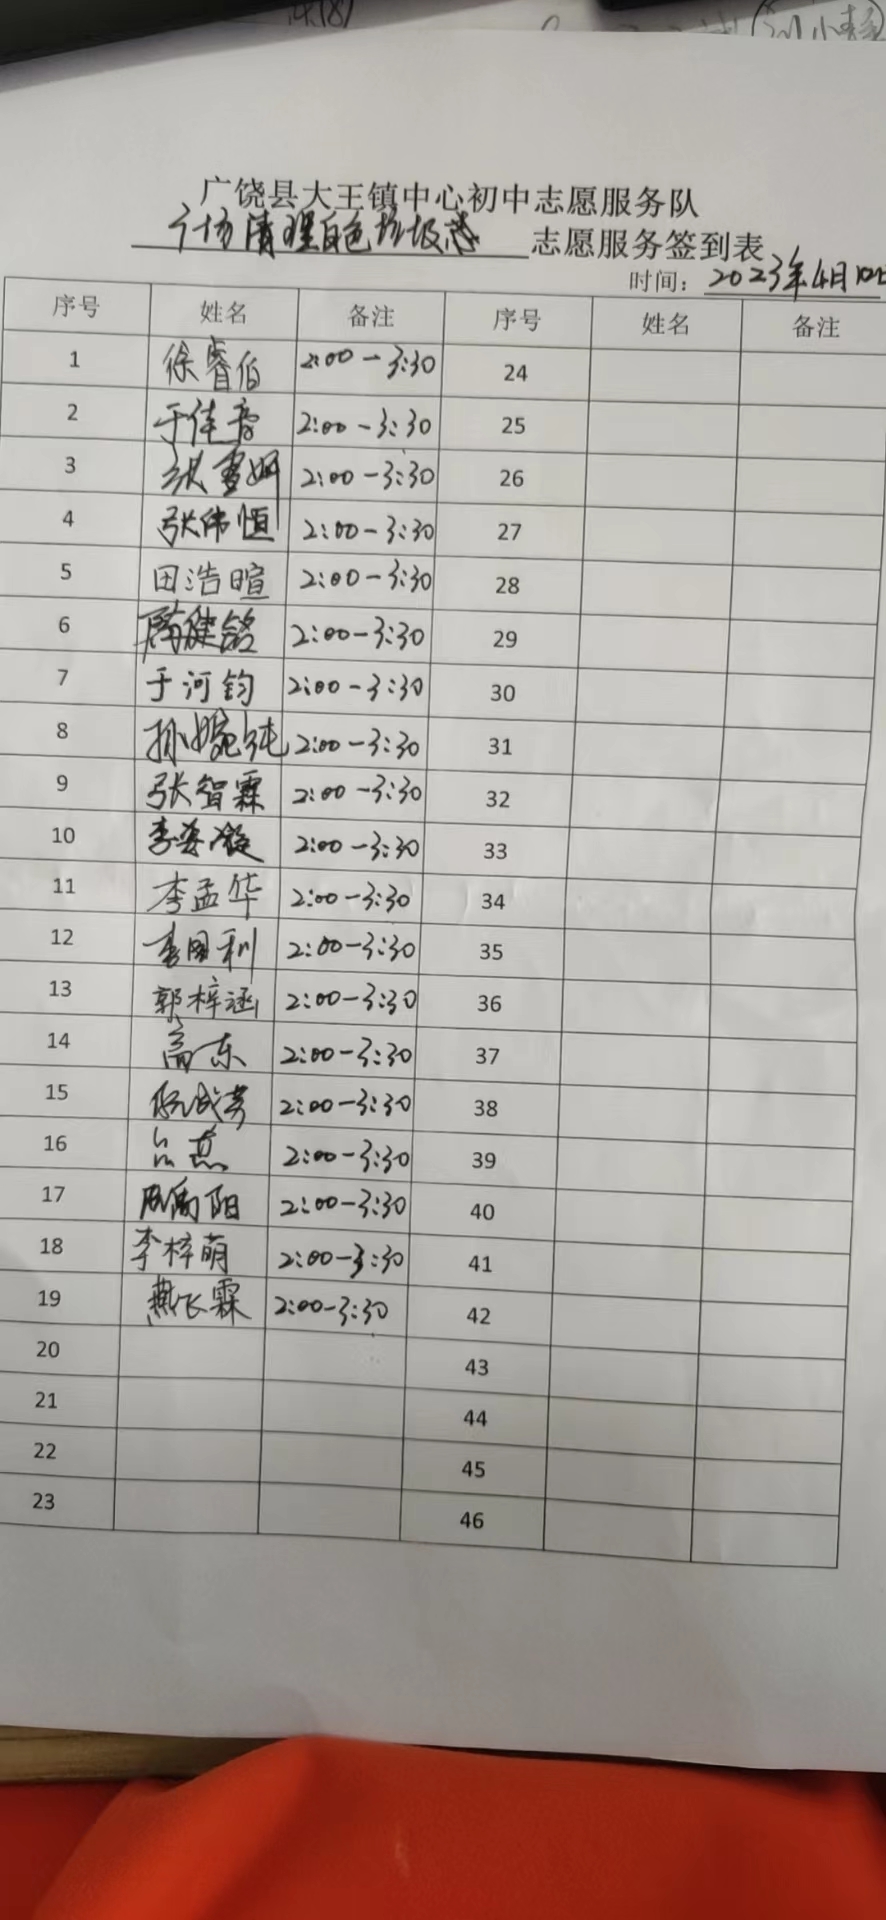 小静
广饶县大王镇中心初中志愿服务队
广场清理白色垃圾 志愿服务签到表
时间：2023年4月
序号 姓名 备注 序号 姓名 备注
1 徐睿伯 2:00-3:30 24
2 于佳 2:00-3:30 25
3 张雪 2:00-3:30 26
4 张伟恒 2:00-3:30 27
5 田浩暄 2:00-3:30 28
6 2:00-3:30 29
7 于河钧 2:00-3:30 30
8 孙婉纯 2:00-3:30 31
9 张智霖 2:00-3:30 32
10 李 2:00-3:30 33
11 李孟华 2:00-3:30 34
12 李国利 2:00-3:30 35
13 郭梓涵 2:00-3:30 36
14 高东 2:00-3:30 37
15 成芳 2:00-3:30 38
16 吕燕 2:00-3:30 39
17 阳 2:00-3:30 40
18 李梓萌 2:00-3:30 41
19 燕飞霖 2:00-3:30 42
20 43
21 44
22 45
23 46